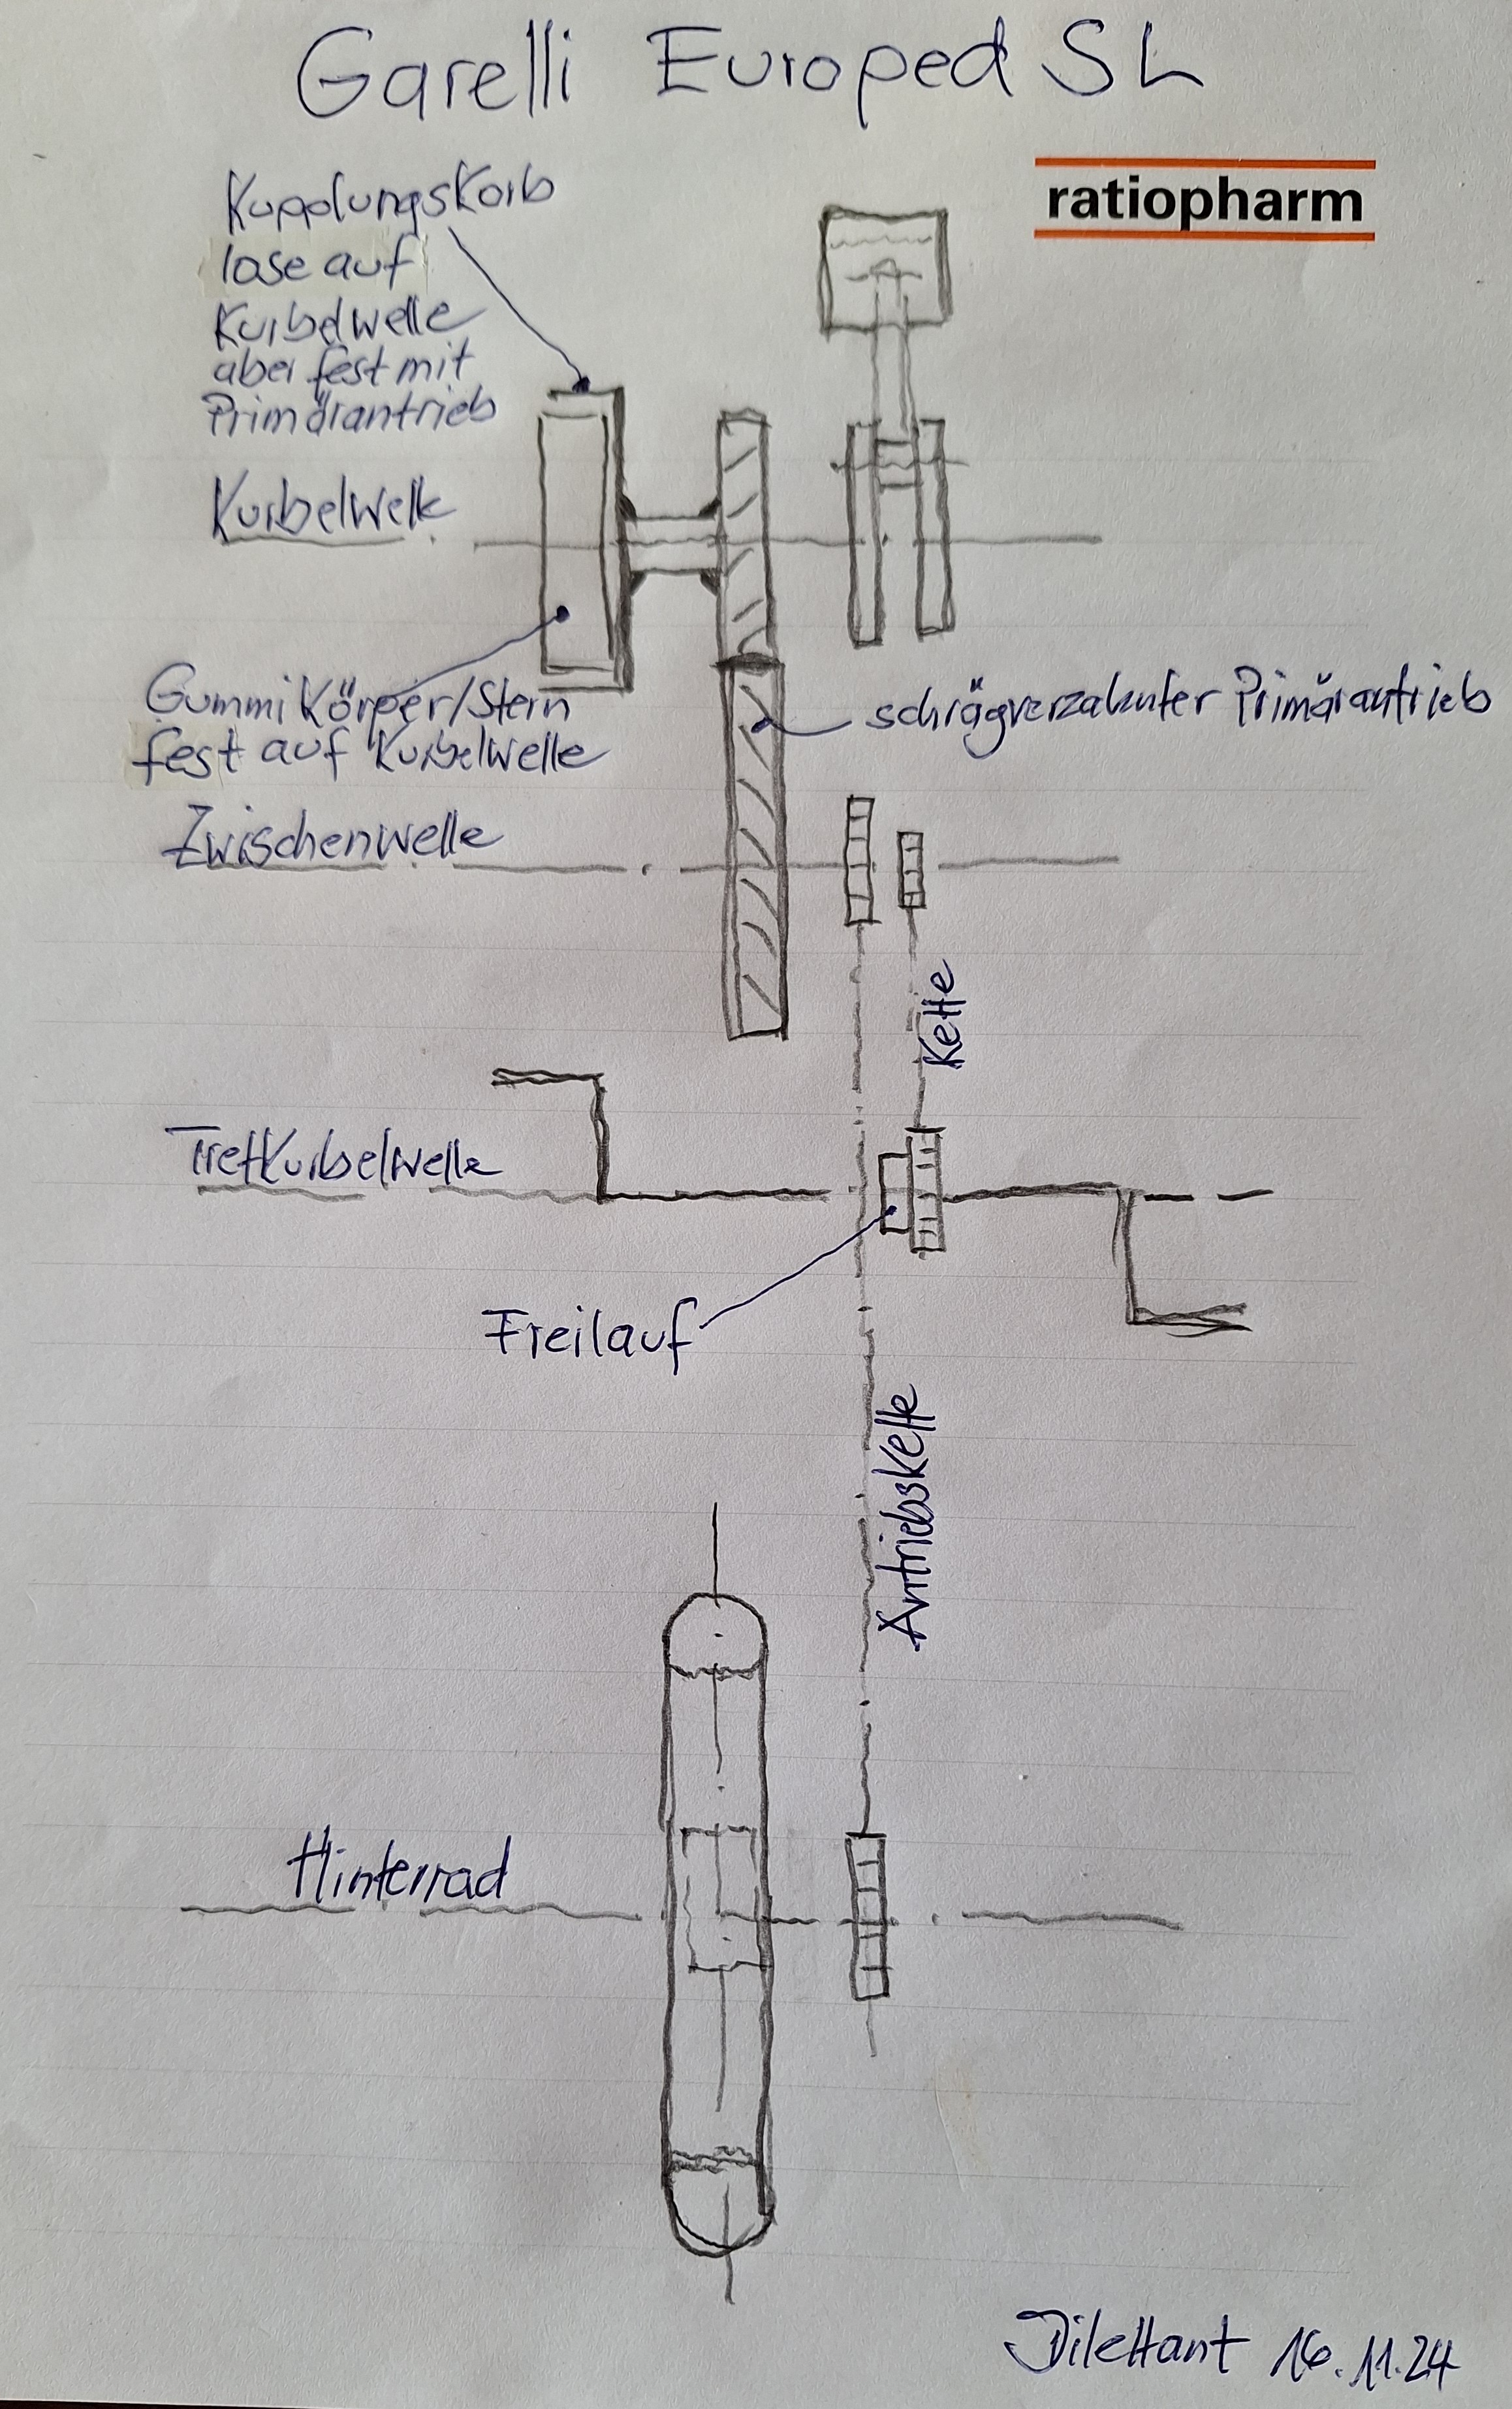 Garelli Europed SL
ratiopharm
Kupplungskorb
lose auf
Kurbelwelle
aber fest mit
Primärantrieb
Kurbelwelle
Gummikörper/Stern
fest auf Kurbelwelle
schrägverzahnter Primärantrieb
Zwischenwelle
Kette
Tretkurbelwelle
Freilauf
Antriebskette
Hinterrad
Dilettant 16.11.24